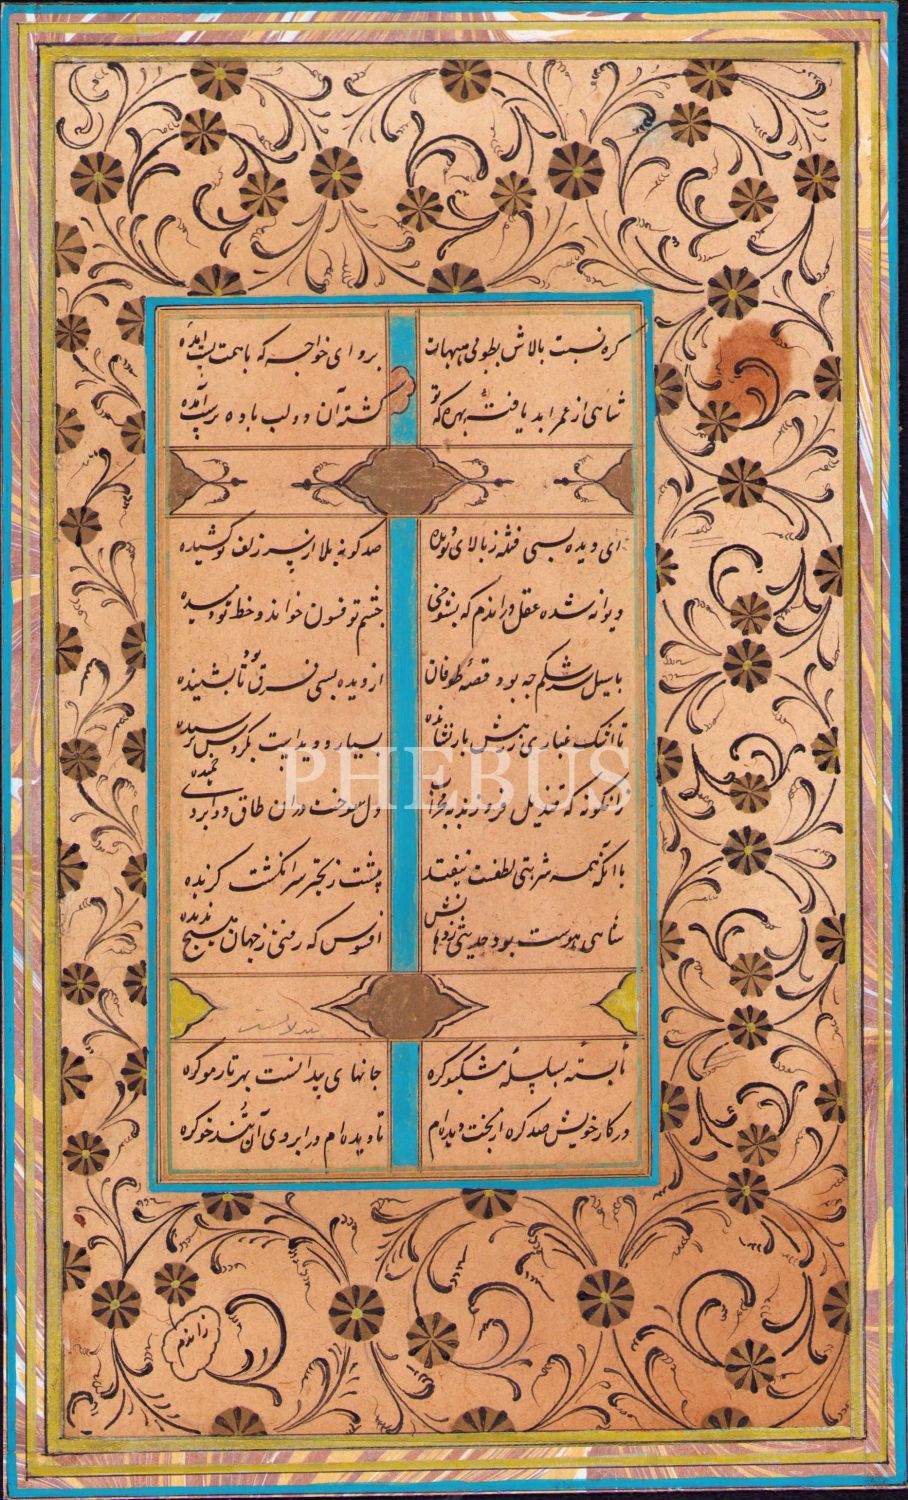 کره نسبت بالاش بطوبی هیهات
برو ای خواجه که با همت پست آیدَه
شاهی از عمر ابد یافت بهره که تو
کشته آن دو لب باده پرست آیدَه
ای دیده بسی فتنه ز بالای تو دیده
صد گونه بلا از سر زلف تو کشیده
دیوانه شده عقل در اندم که بشوخی
چشم تو فسون خواند و خط تو دمیده
با سیل سرشکم چه بود قصهٔ طوفان
از دیده بسی فرق بود تا بشنیده
تا اشک غباری ز رهش باز نشانده
بسیار دویدست بگردش نرسیده
زانگونه که قندیل فروزند بمحراب
دل سوخت در آن طاق دو ابروی خمیده
با آنکه همه شربتی لطفست
پشت ز سر انگشت گزیده
شاهی هوست بود حدیثی ز دهانش
افسوس که رفتی ز جهان هیچ ندیده
تا بسته بسلسلهٔ مشکبو گره
جانهای پیدانست بهر تار مو گره
در کار خویش صد گره از بخت دیده‌ام
تا دیده‌ام در ابروی آن تندخو گره
PHEBUS